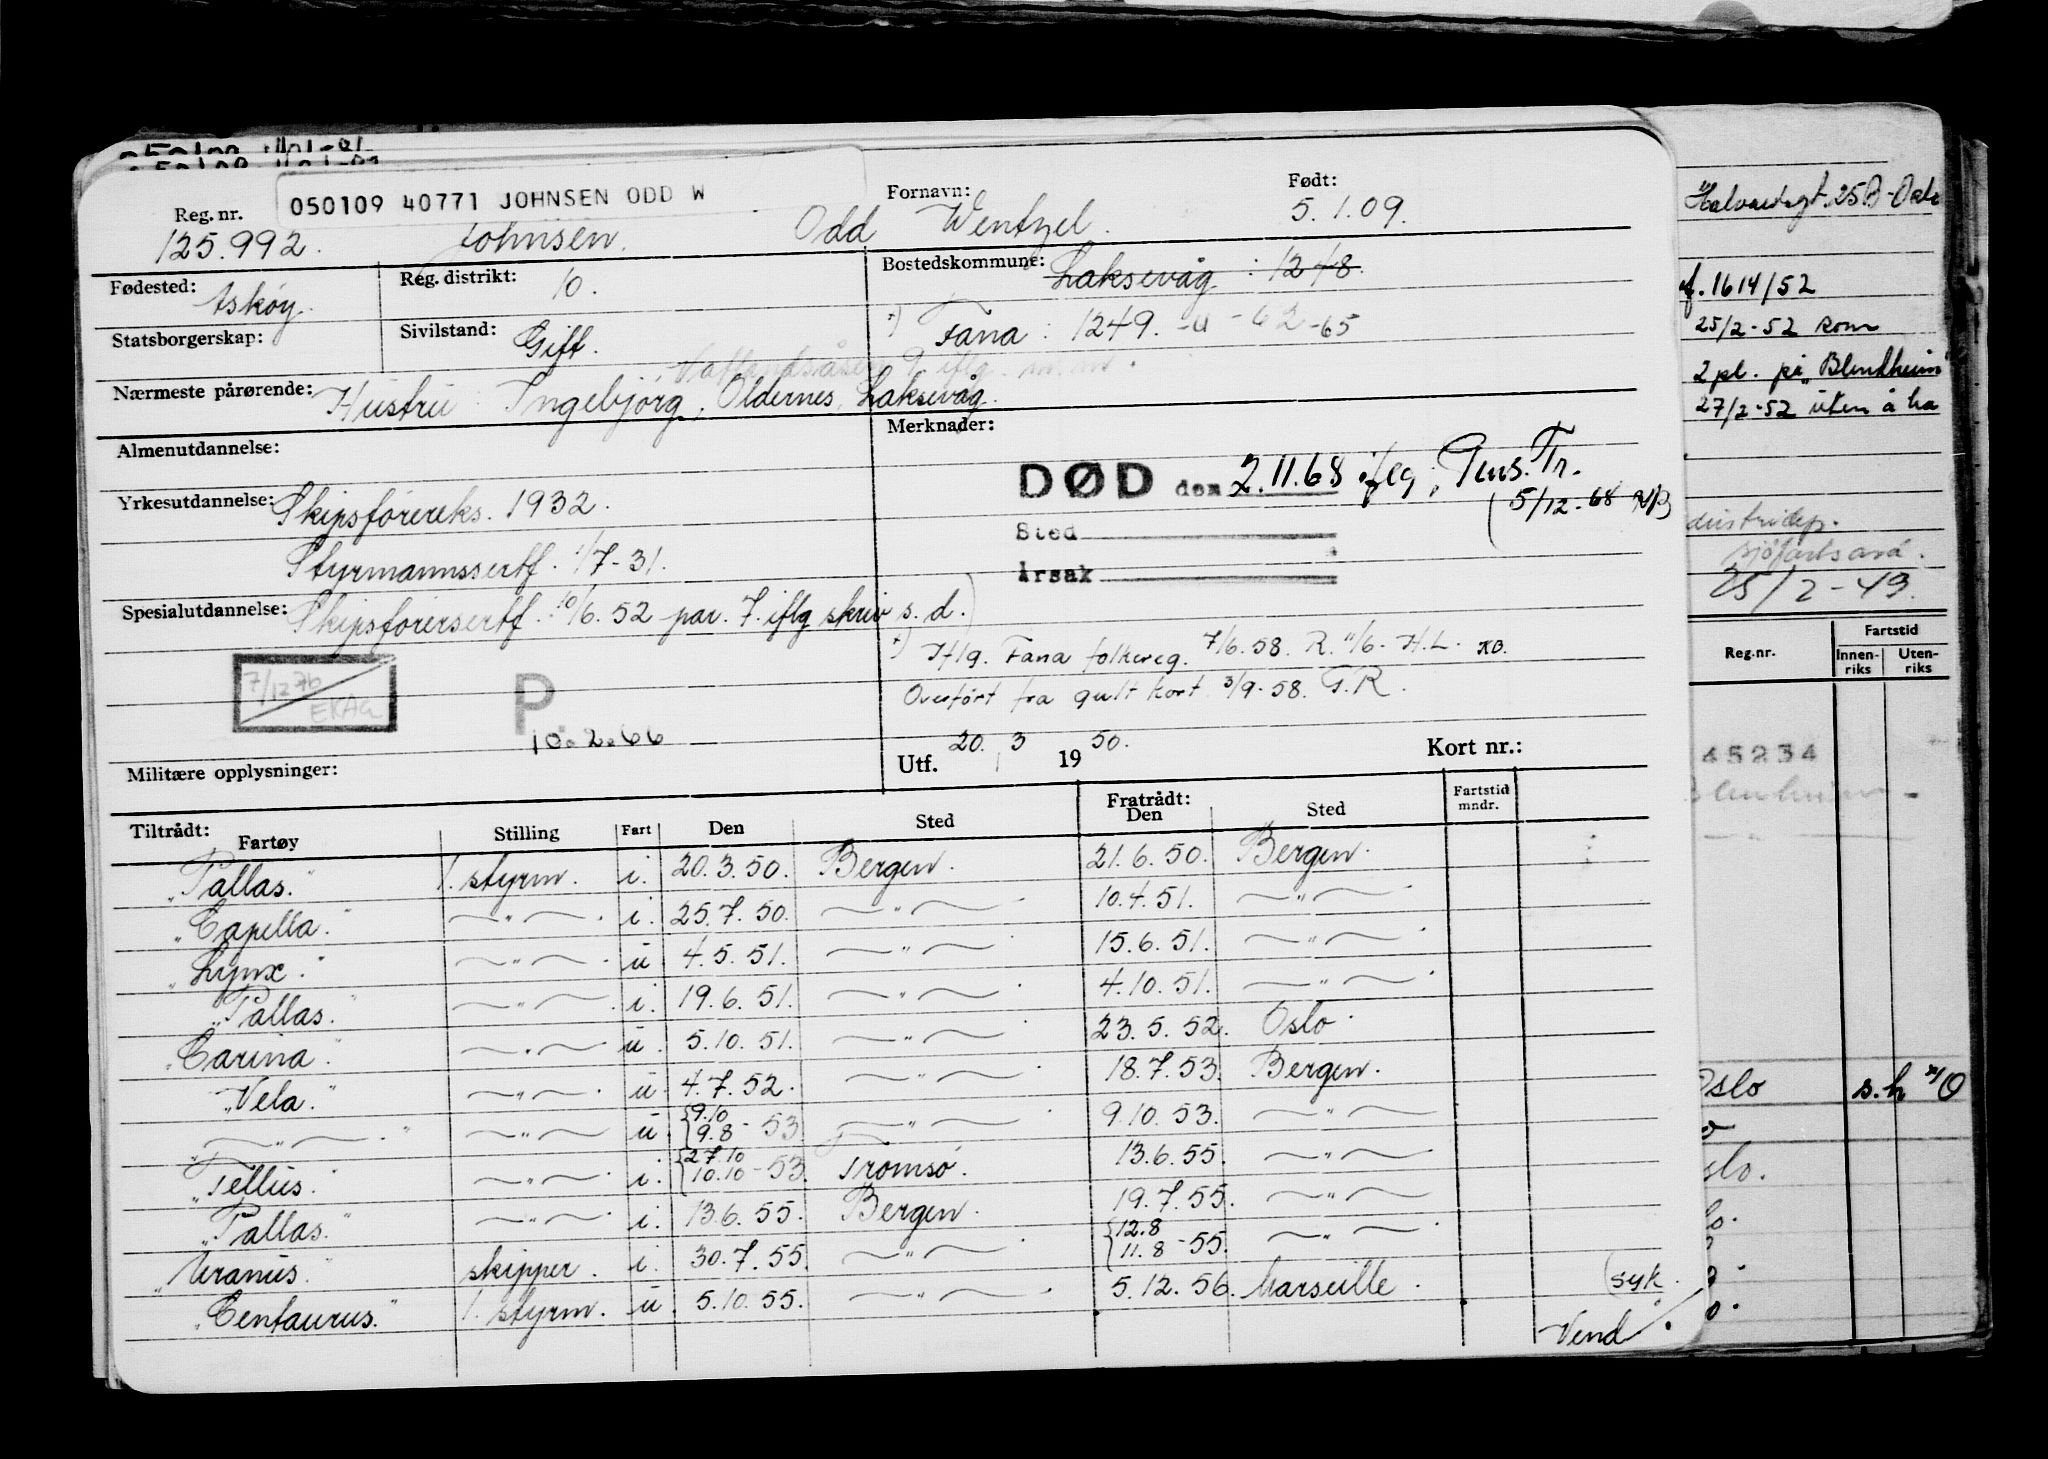 050109 40771 JOHNSEN ODD W
Reg. nr. 125.992. Johnsen. Fornavn: Odd Wentzel. Født: 5.1.09.
Fødested: Askøy. Reg. distrikt: 10. Bostedskommune: Laksevåg : 1248.
Statsborgerskap: Sivilstand: Gift. *) Fana : 1249. -u - 62 -65
Nærmeste pårørende: Hustru : Ingebjørg, Oldernes, Laksevåg.
Almenutdannelse: Merknader:
DØD den 2.11.68 iflg. Pens. Tr.
(5/12-68
Yrkesutdannelse: Skipsførereks. 1932.
Sted
Styrmannssertf. 1/7-31.
Årsak
Spesialutdannelse: Skipsførersertf. 10/6.52 par. 7. iflg skriv s.d.)
*) Iflg. Fana folkereg. 7/6.58. R. 11/6- H.L.
Overført fra gult kort 3/9-58. F.R.
7/12 76
EKAG
P
10.2.66
Militære opplysninger: Utf. 20. 3 1950. Kort nr.:
Tiltrådt: Fratrådt:
Fartøy Stilling Fart Den Sted Den Sted Fartstid mndr.
"Pallas." 1. styrm. i. 20.3.50. Bergen. 21.6.50. Bergen.
"Capella." — " — . i. 25.7.50. — " — . 10.4.51. — " — .
"Lynx." — " — . u 4.5.51. — " — . 15.6.51. — " — .
"Pallas." — " — . i. 19.6.51. — " — . 4.10.51. — " — .
"Carina." — " — u. 5.10.51. — " — 23.5.52. Oslo.
"Vela." — " — . u. 4.7.52. — " — 18.7.53. Bergen.
" — " — . " — " — u. {9.10 9.8 - 53. — " — . 9.10.53. — " —
"Tellus." — " — . i. {27.10 10.10 - 53. Tromsø. 13.6.55. — " — .
"Pallas." — " — . i. 13.6.55. Bergen. 19.7.55. — " —
"Uranus." skipper. i. 30.7.55. — " — . {12.8 11.8 - 55. — " — .
"Centaurus." 1. styrm. u. 5.10.55. — " — . 5.12.56. Marseille. (syk.
Vend
Halvardsgt. 25B - Oslo
f. 1614/52
25/2-52
2 pl. på "Blenheim"
27/2-52 uten å ha
sjøfartsavd.
25/2-49.
Fartstid
Reg.nr. Innenriks Utenriks
45234
Blenheim -
Oslo s.h
slo.